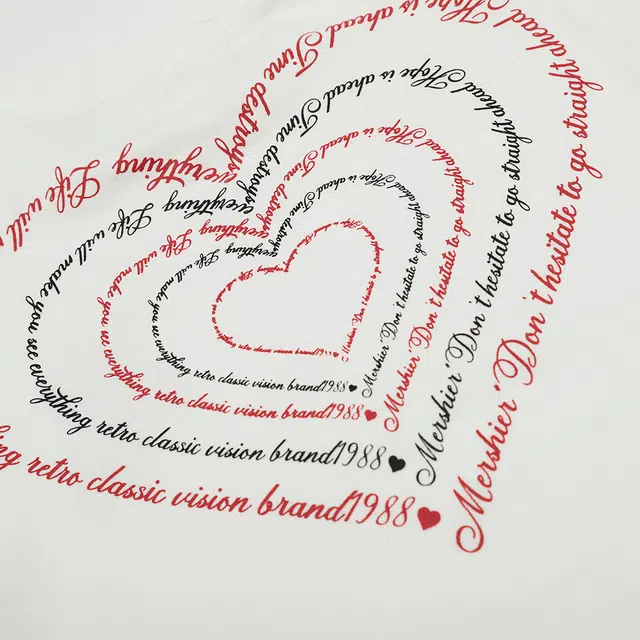 Mershier"Don't hesitate to go straight ahead Hope is ahead Time destroys everything Life will
retro classic vision brand1988
Mershier"Don't hesitate to go straight ahead Hope is ahead Time destroys everything Life will make you see everything retro classic vision brand1988
Mershier"Don't hesitate to go straight ahead Hope is ahead Time destroys everything Life will make you see everything retro classic vision brand1988
Mershier"Don't hesitate to go straight ahead Hope is ahead Time destroys everything Life will make you see everything retro classic vision brand1988
Mershier"Don't hesitate to go straight ahead Hope is ahead Time destroys everything Life will make you see everything retro classic vision brand1988